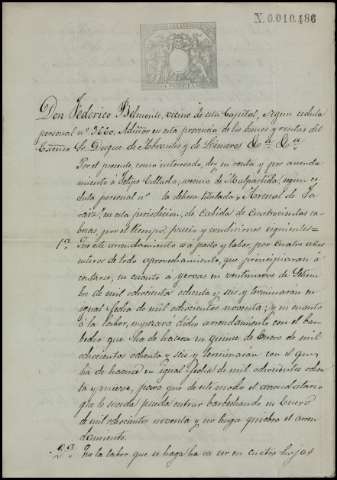 N. 0.010.486
Don Federico Belmonte, vecino de esta Capital, segun cedula
personal nº 3660, Admor en esta provincia de los bienes y rentas del
Excmo Sr. Duque de Abrantes y de Linares &ª &ª
Por el presente, como interesado, doy en renta y por arren-
damiento á Felipe Collado, vecino de Malpartida, segun ce-
dula personal nº la dehesa titulada Arenal de
en esta jurisdiccion, de cabida de cuatrocientas ca-
bezas, por el tiempo, precio y condiciones siguientes=
1ª Este arrendamiento es á pasto y labor, por cuatro años
enteros de todo aprovechamiento, que principiaran á
contarse, en cuanto á yervas en veintinueve de Setiem-
bre de mil ochocientos ochenta y seis y terminaran en
igual fecha de mil ochocientos noventa; y en cuanto
á la labor, empezará dicho arrendamiento con el bar-
becho que ha de hacerse en quince de Enero de mil
ochocientos ochenta y seis y terminaran con el que
ha de hacerse en igual fecha de mil ochocientos ochen-
ta y nueve, para que de este modo el arrendatario
que le suceda pueda entrar barbechando en Enero
de mil ochocientos noventa y no haya quiebra el arren-
damiento.
2ª En la labor que se haga ha de ser en cuatro hojas